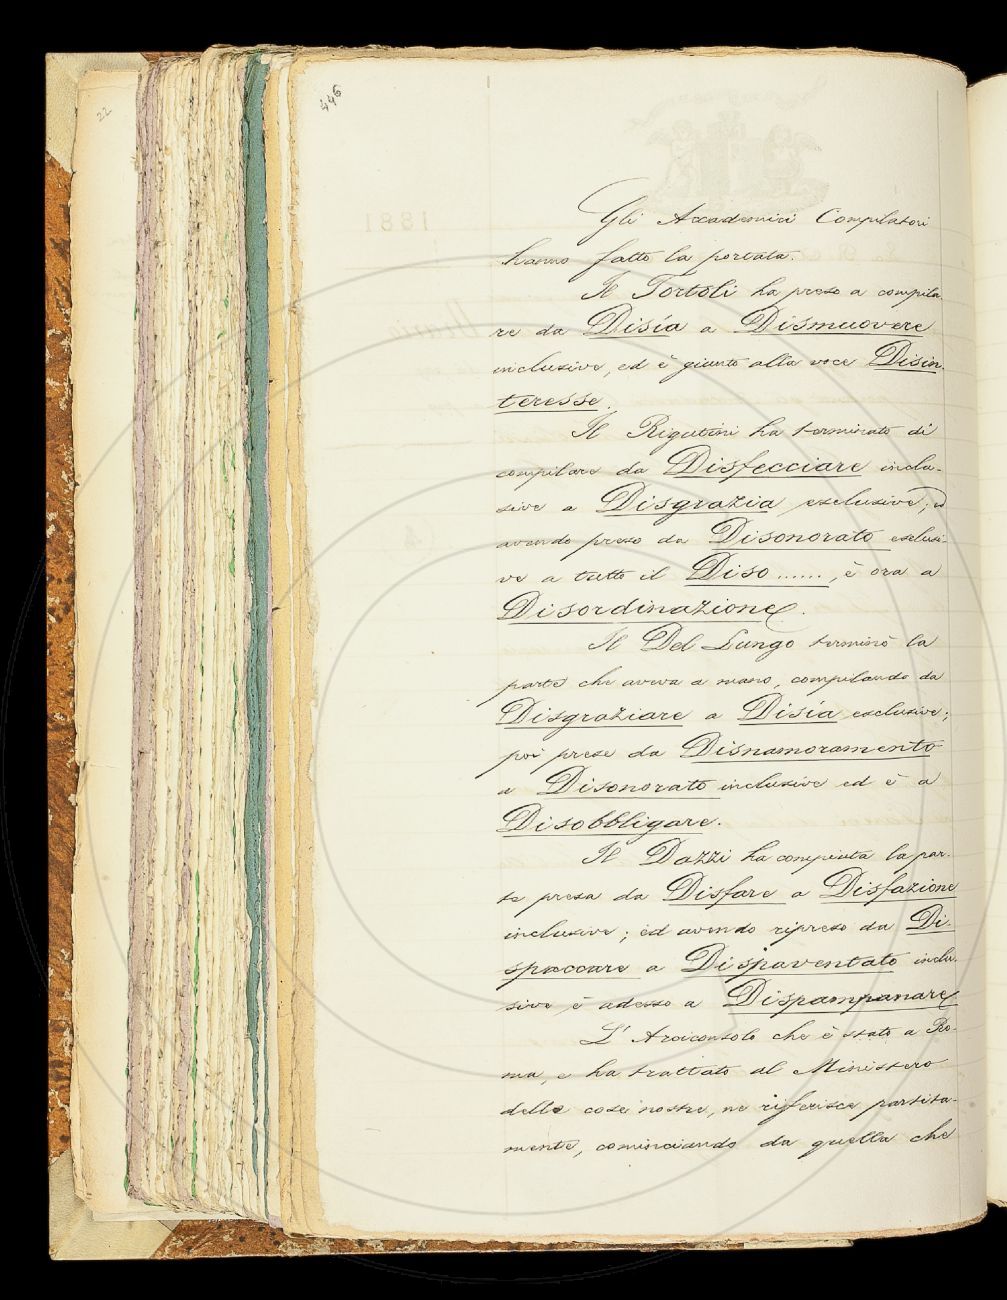 22
446
Gli Accademici Compilatori
hanno fatto la portata.
Il Tortoli ha preso a compila
re da Disía a Dismuovere
inclusive, ed è giunto alla voce Disin
teresse.
Il Rigutini ha terminato di
compilare da Disfecciare inclu-
sive a Disgrazia esclusive; ed
avendo preso da Disonorato esclusi-
ve a tutto il Diso......, è ora a
Disordinazione.
Il Del Lungo terminò la
parte che aveva a mano, compilando da
Disgraziare a Disía esclusive;
poi prese da Disnamoramento
a Disonorato inclusive ed è a
Disobbligare.
Il Dazzi ha compiuta la par-
te presa da Disfare a Disfazione
inclusive; ed avendo ripreso da Di-
spaccare a Dispaventato inclu-
sive è adesso a Dispampanare
L'Arciconsolo che è stato a Ro-
ma, e ha trattato al Ministero
delle cose nostre, ne riferisce partita-
mente, cominciando da quella che